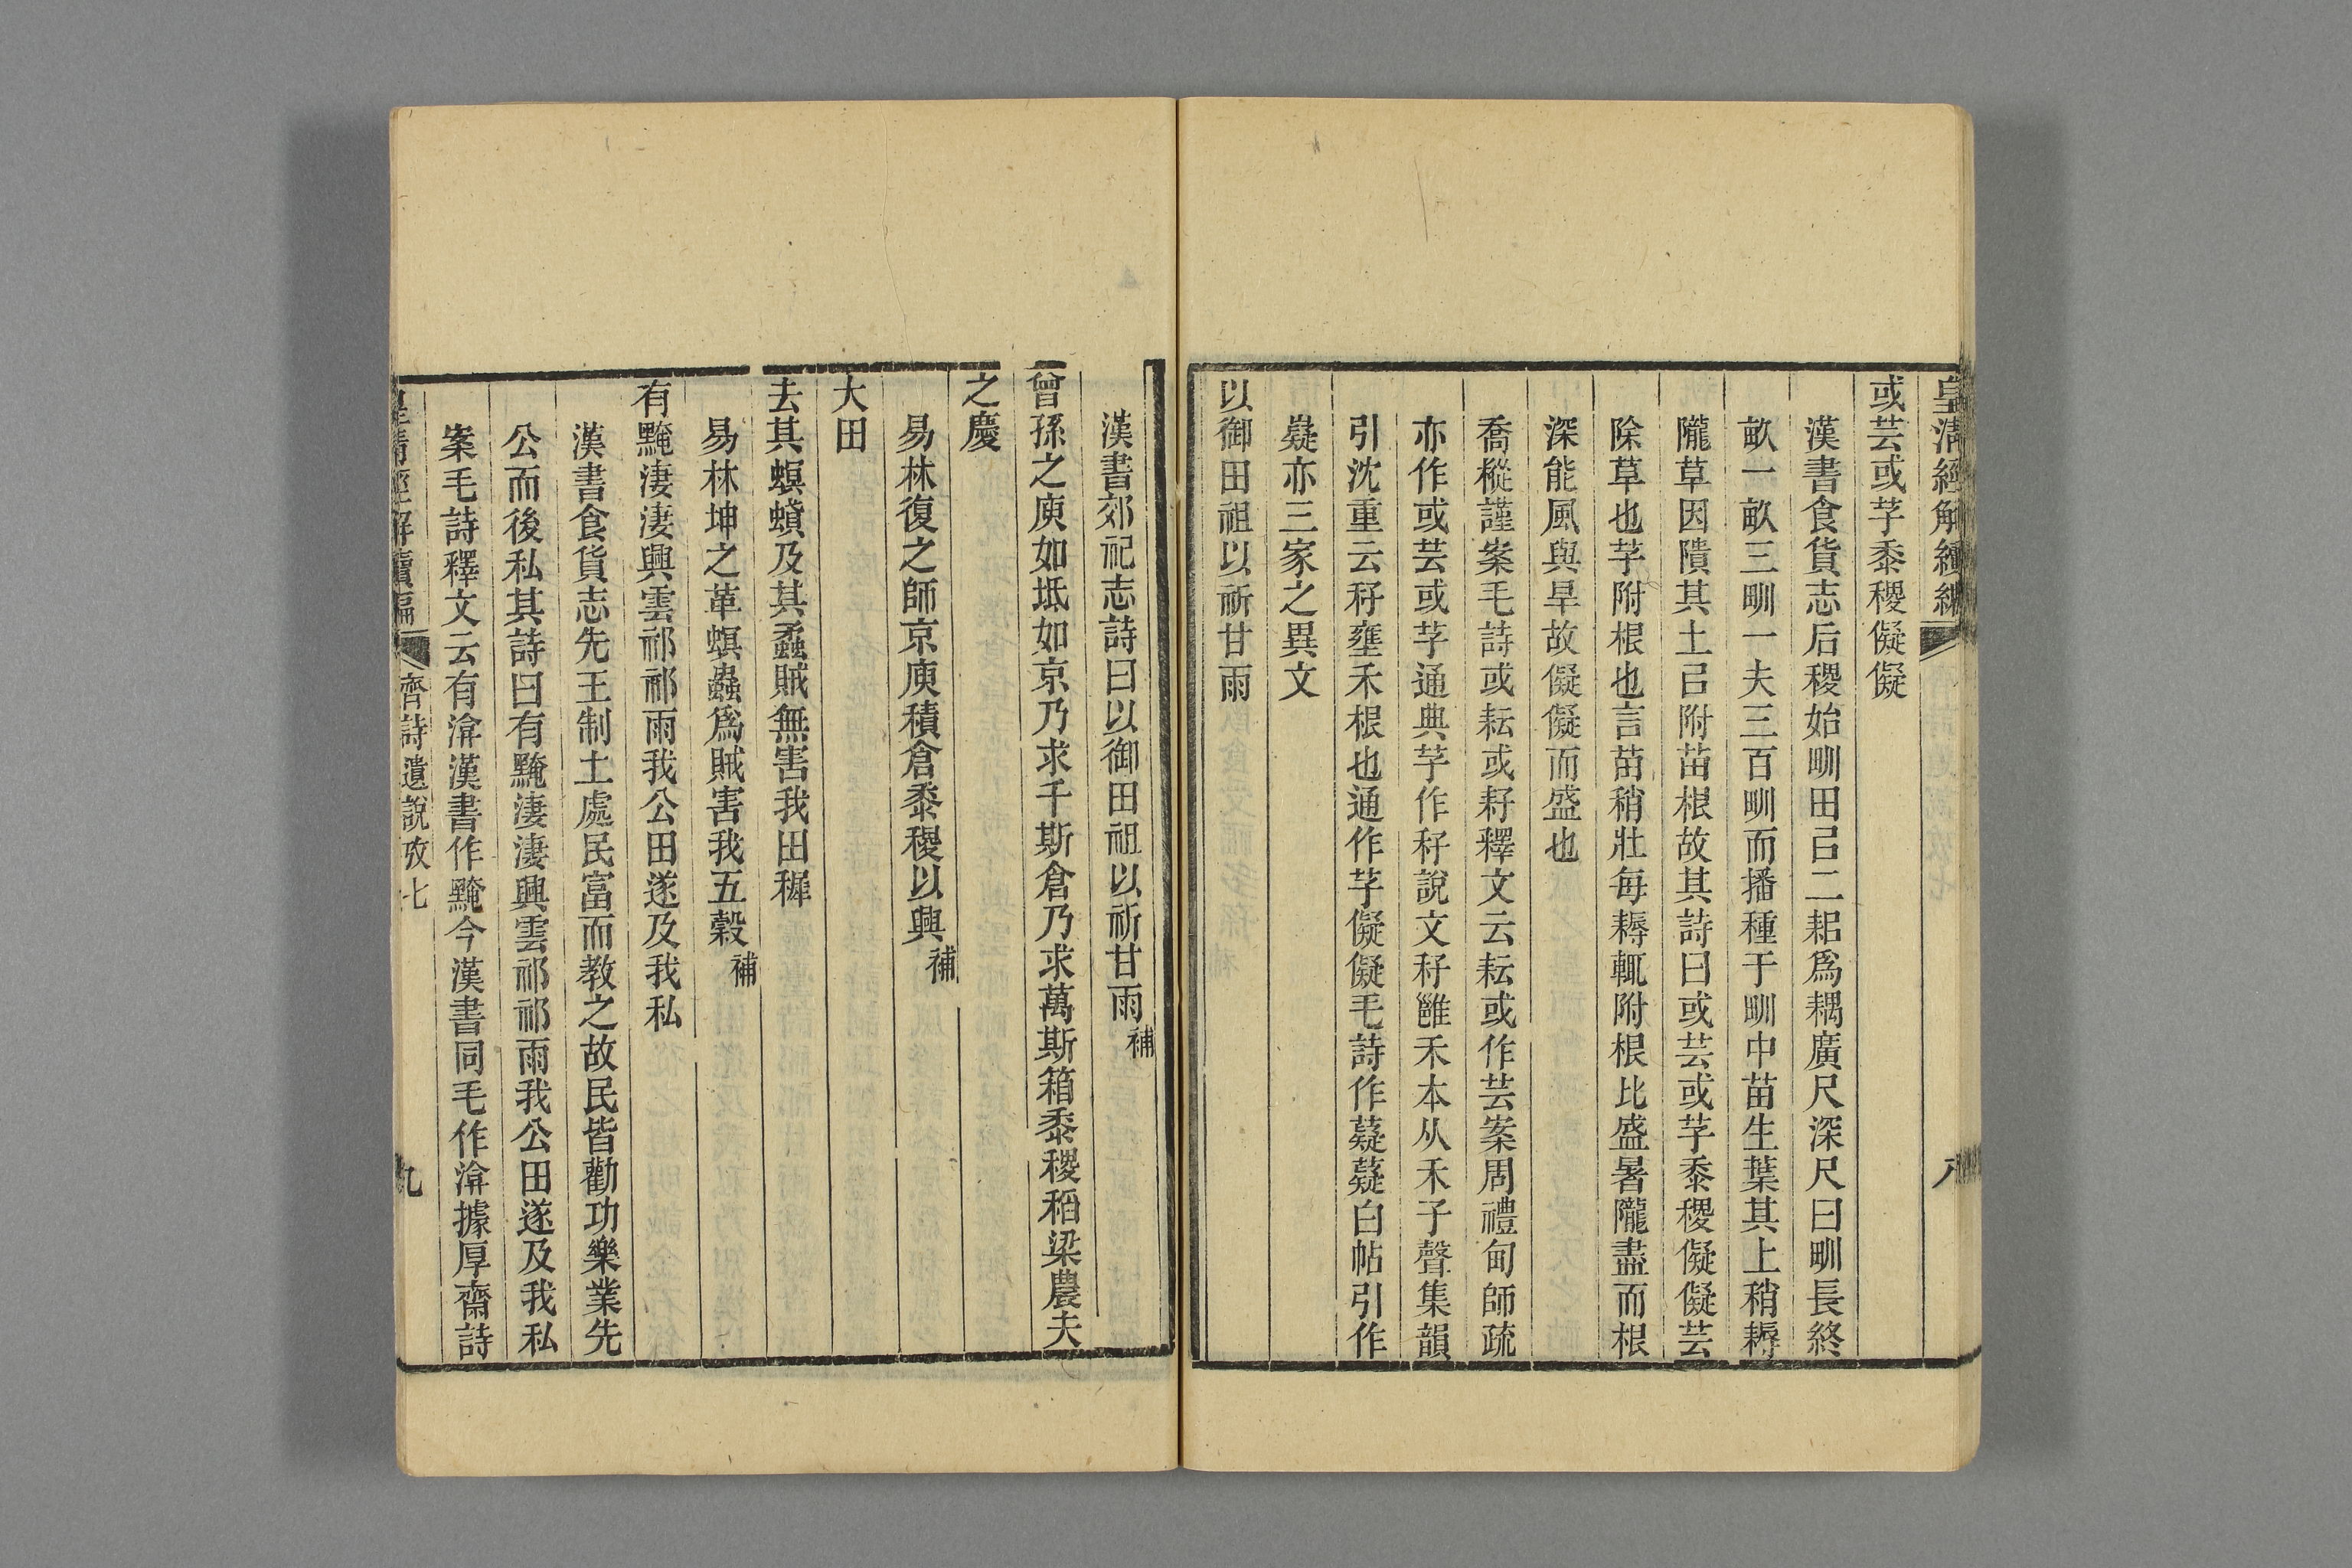 皇清經解續編
八
或芸或芓黍稷儗儗
漢書食貨志后稷始甽田㠯二耜爲耦廣尺深尺曰甽長終
畝一畝三甽一夫三百甽而播種于甽中苗生葉其上稍耨
隴草因隤其土㠯附苗根故其詩曰或芸或芓黍稷儗儗芸
除草也芓附根也言苗稍壯每耨輒附根比盛暑隴盡而根
深能風與旱故儗儗而盛也
喬樅謹案毛詩或耘或耔釋文云耘或作芸案周禮甸師疏
亦作或芸或芓通典芓作秄說文秄雝禾本从禾子聲集韻
引沈重云秄壅禾根也通作芓儗儗毛詩作薿薿白帖引作
嶷亦三家之異文
以御田祖以祈甘雨
漢書郊祀志詩曰以御田祖以祈甘雨補
曾孫之庾如坻如京乃求千斯倉乃求萬斯箱黍稷稻梁農夫
之慶
易林復之師京庾積倉黍稷以興補
大田
去其螟蟘及其蟊賊無害我田穉
易林坤之革螟蟲爲賊害我五穀補
有黤淒淒興雲祁祁雨我公田遂及我私
漢書食貨志先王制土處民富而教之故民皆勸功樂業先
公而後私其詩曰有黤淒淒興雲祁祁雨我公田遂及我私
案毛詩釋文云有渰漢書作黤今漢書同毛作渰據厚齋詩
皇清經解續編
齊詩遺說攷七
九